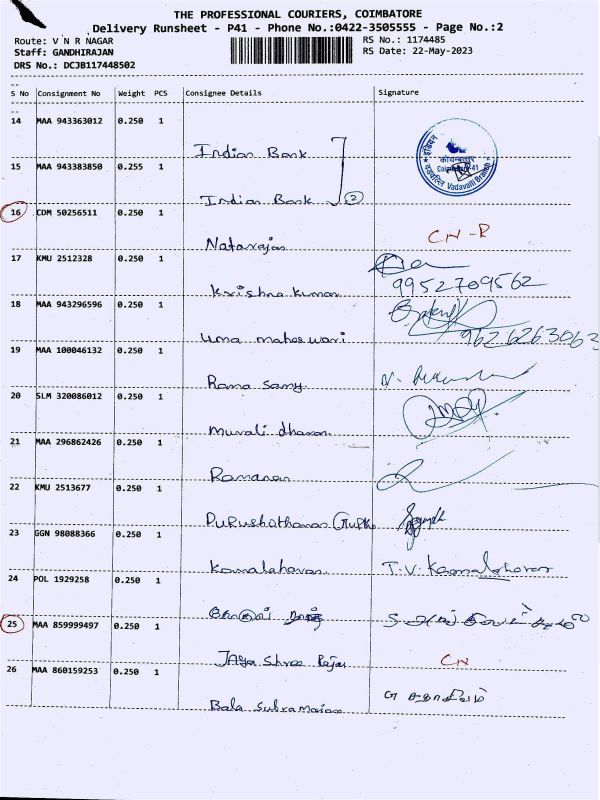 THE PROFESSIONAL COURIERS, COIMBATORE
Delivery Runsheet - P41 - Phone No.:0422-3505555 - Page No.:2
Route: V N R NAGAR RS No.: 1174485
Staff: GANDHIRAJAN RS Date: 22-May-2023
DRS No.: DCJB117448502
S No Consignment No Weight PCS Consignee Details Signature
14 MAA 943363012 0.250 1
Indian Bank
15 MAA 943383850 0.255 1
Indian Bank 2
16 CDM 50256511 0.250 1
Natarajan CN-R
17 KMU 2512328 0.250 1
Krishna kumar 9952709562
18 MAA 943296596 0.250 1
Uma maheswari 9626263063
19 MAA 100046132 0.250 1
Rama samy
20 SLM 320086012 0.250 1
Murali dharan
21 MAA 296862426 0.250 1
Ramanan
22 KMU 2513677 0.250 1
Purushothaman Gupta
23 GGN 98088366 0.250 1
Kamalaharan T.V. Kamalaharan
24 POL 1929258 0.250 1
25 MAA 859999497 0.250 1
Jaya Shree Rajan CN
26 MAA 860159253 0.250 1
Bala Subramaian